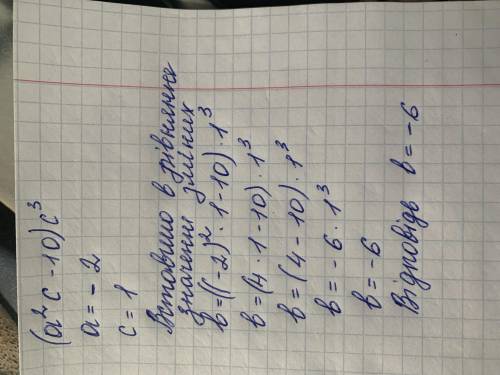 (a²c - 10)c³
a = - 2
c = 1
Вставимо в рівняння
значення змінних
b = ((-2)² · 1 - 10) · 1³
b = (4 · 1 - 10) · 1³
b = (4 - 10) · 1³
b = - 6 · 1³
b = - 6
Відповідь b = - 6